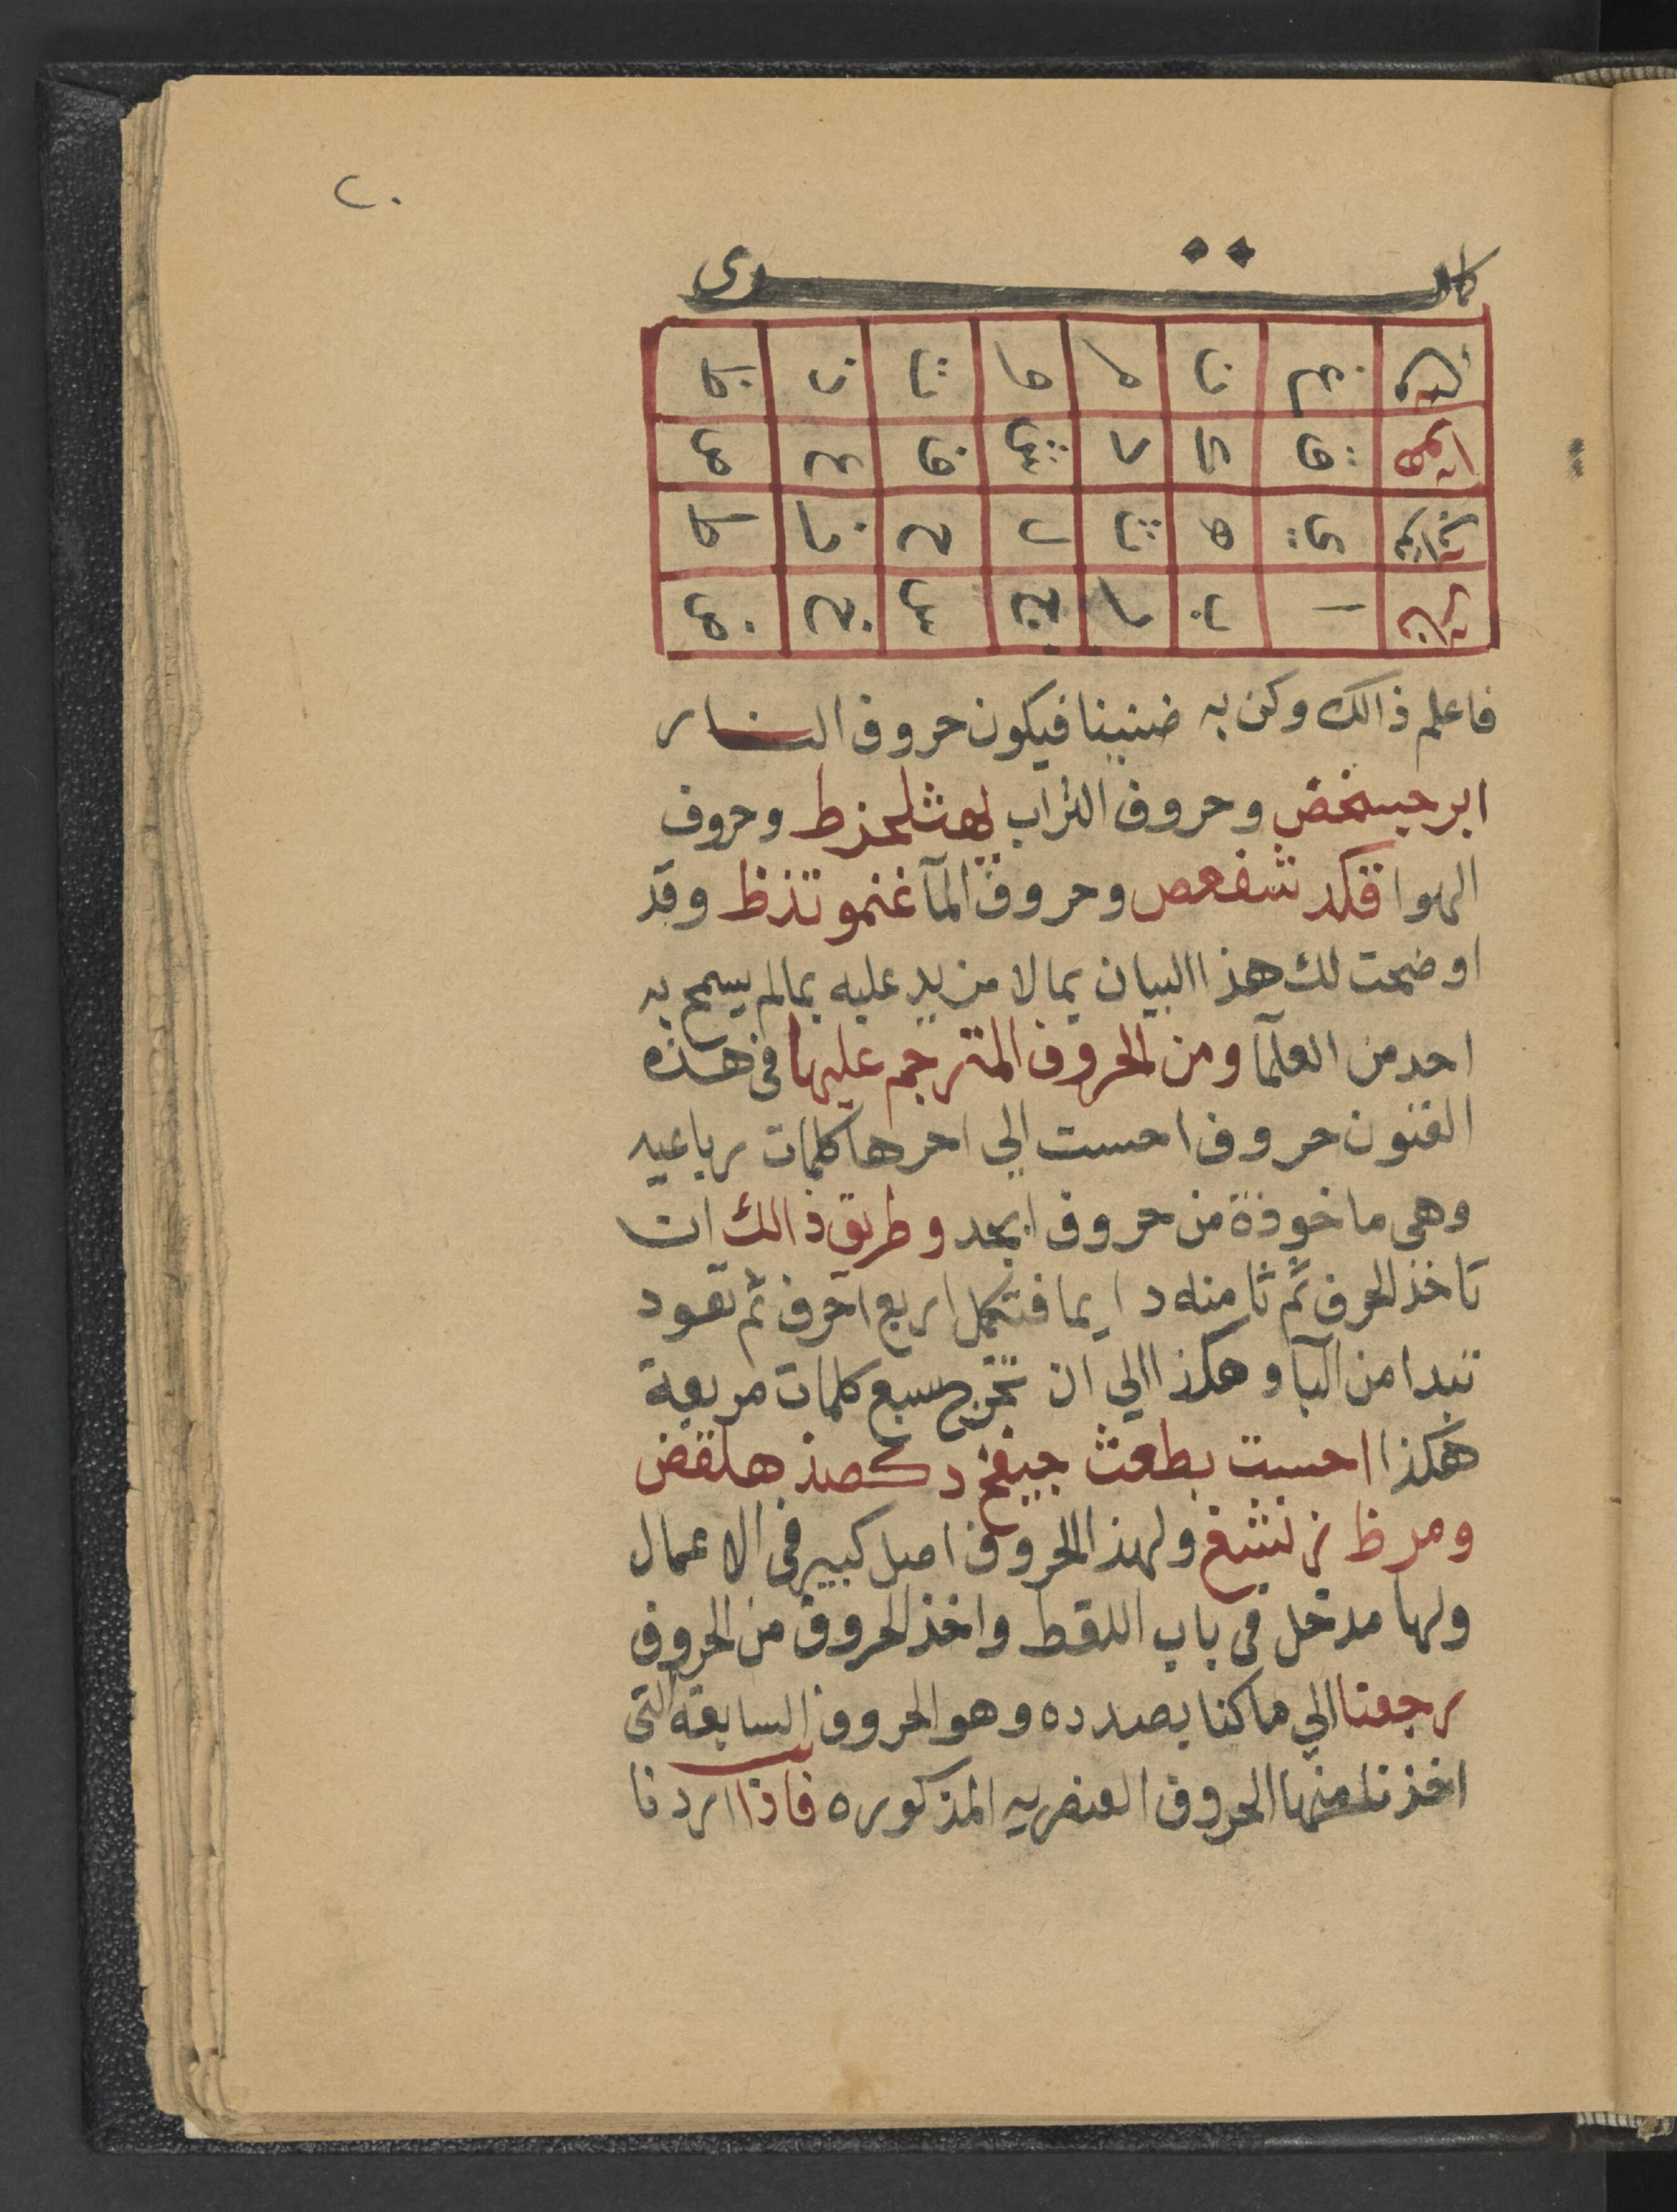 ٢٠
كا تري
مائيه غ ن م و ت ذ ظ
هوائيه ق ك د ش ف ع ص
ترابيه ي ه ث ل ح ز ط
ناريه ا ب ر ج س خ ض
فاعلم ذالك وكن به ضنينا فيكون حروف النار
ابرجسخض وحروف التراب يهثلحزط وحروف
الهوا قكد شفعص وحروف المآ غنمو تذظ وقد
اوضحت لك هذا البيان بما لا مزيد عليه بمالم يسمح به
احد من العلمآ ومن الحروف المترجم عليها فى هذه
الفنون حروف احست الي اخرها كلمات رباعيه
وهى ماخوذة من حروف ابجد وطريق ذالك ان
تاخذ الحرف ثم ثامنه دايما فتكمل اربع احرف ثم تعود
تبدا من البآ وهكذا الي ان تخرج سبع كلمات مربعة
هكذا احست بطعث جيفخ دكصذ هلقض
ومرظ زنشغ ولهذ الحروف اصل كبير فى الاعمال
ولها مدخل فى باب اللقط واخذ الحروف من الحروف
رجعنا الي ما كنا بصدده وهو الحروف السابقة التى
اخذنا منها الحروف العنصريه المذكوره فاذا اردنا